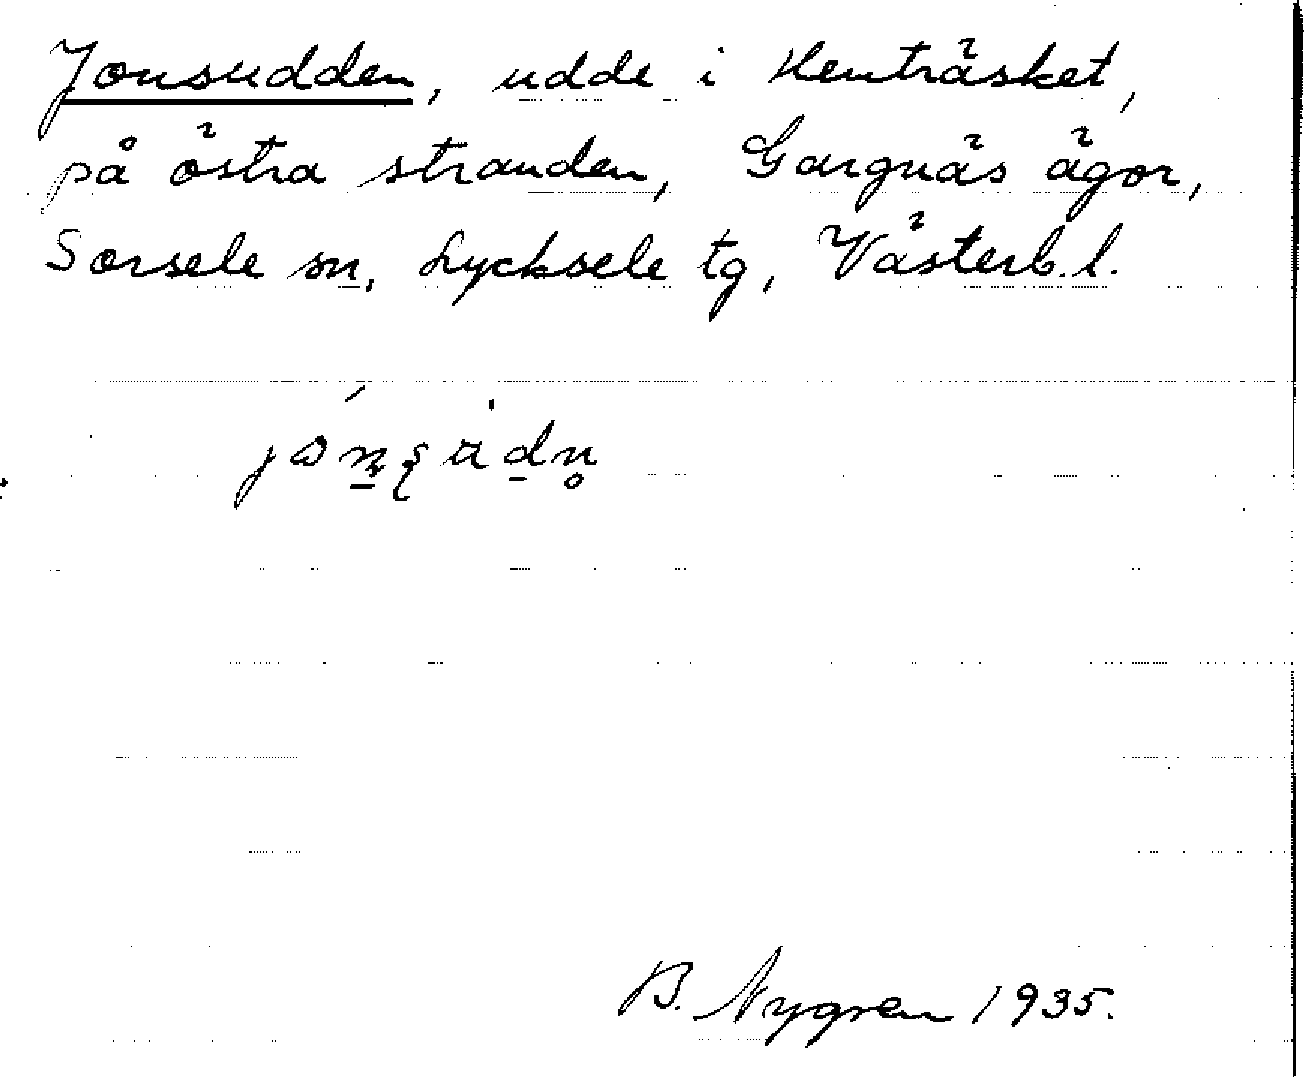 Jonsudden, udde i Hemträsket,
på östra stranden, Gargnäs ägor,
Sorsele sn, Lycksele tg, Västerb. l.
B. Nygren 1935.